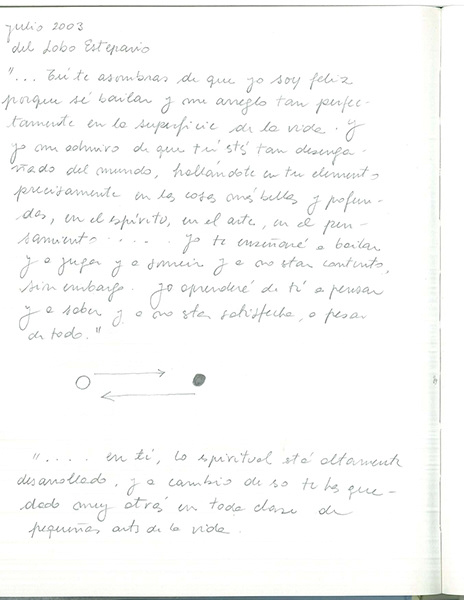 julio 2003
del Lobo Estepario
"... Tú te asombras de que yo soy feliz
porque sé bailar y me arreglo tan perfec-
tamente en la superficie de la vida. Y
yo me admiro de que tú stés tan desenga-
ñado del mundo, hallándote en tu elemento
precisamente en las cosas más bellas y profun-
das, en el espíritu, en el arte, en el pen-
samiento ..... Yo te enseñaré a bailar
y a jugar y a sonreir y a no star contento,
sin embargo. Yo aprenderé de ti a pensar
y a saber y a no star satisfecha, a pesar
de todo."
".... en ti, lo espiritual stá altamente
desarrollado, y a cambio de so te has que-
dado muy atrás en toda clase de
pequeñas arts de la vida.